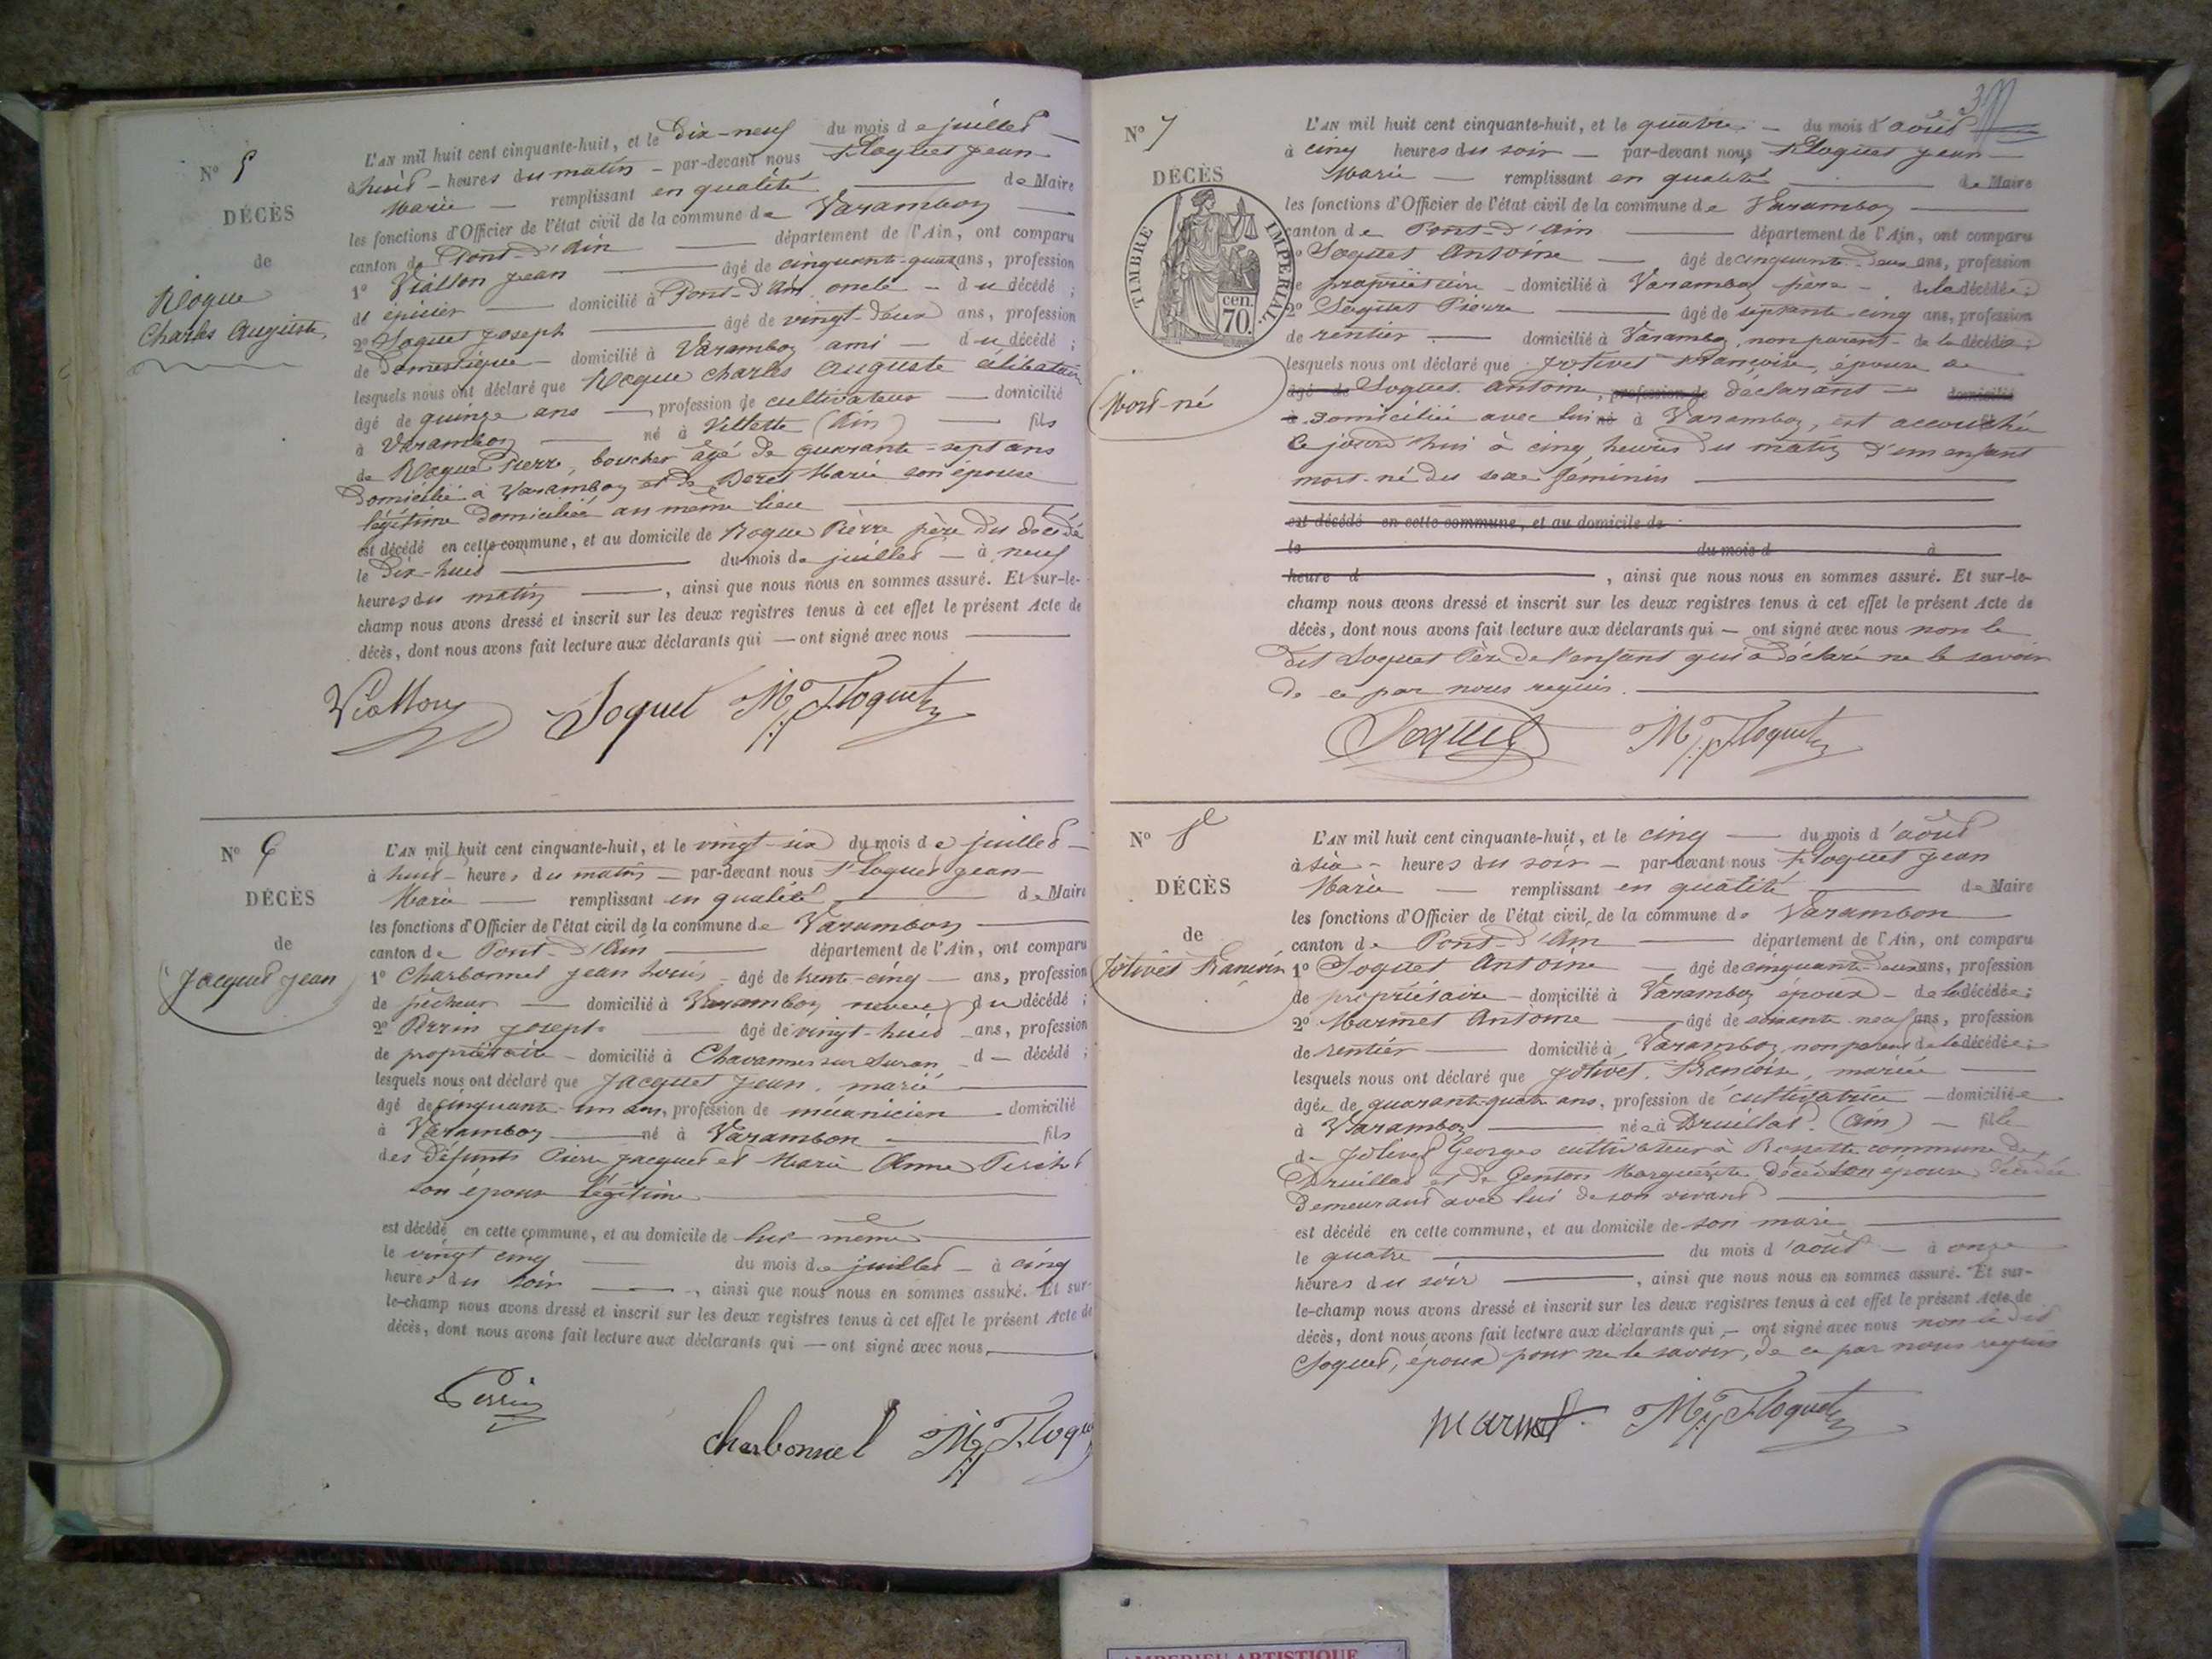 N° 5
DÉCÈS
de
Roque
Charles Auguste
L'AN mil huit cent cinquante-huit, et le Dix-neuf du mois de juillet
à huit heures du matin par-devant nous Floquet Jean
Marie remplissant en qualité de Maire
les fonctions d'Officier de l'état civil de la commune de Varambon
canton de Pont-d'Ain département de l'Ain, ont comparu
1° Viallon Jean âgé de cinquante-quatre ans, profession
de épicier domicilié à Pont-d'Ain oncle du décédé ;
2° Soquet Joseph âgé de vingt-deux ans, profession
de domestique domicilié à Varambon ami du décédé ;
lesquels nous ont déclaré que Roque Charles Auguste célibataire
âgé de quinze ans, profession de cultivateur domicilié
à Varambon né à Villette (Ain) fils
de Roque Pierre, boucher âgé de quarante-sept ans
Domicilié à Varambon et de Marie son épouse
légitime domiciliée au même lieu
est décédé en cette commune, et au domicile de Roque Pierre père du décédé
le Dix-huit du mois de juillet à neuf
heures du matin, ainsi que nous nous en sommes assuré. Et sur-le-
champ nous avons dressé et inscrit sur les deux registres tenus à cet effet le présent Acte de
décès, dont nous avons fait lecture aux déclarants qui ont signé avec nous
Viallon Soquet Floquet
N° 6
DÉCÈS
de
Jacquet Jean
L'AN mil huit cent cinquante-huit, et le vingt-six du mois de juillet
à huit heures du matin par-devant nous Floquet Jean
Marie remplissant en qualité de Maire
les fonctions d'Officier de l'état civil de la commune de Varambon
canton de Pont-d'Ain département de l'Ain, ont comparu
1° Charbonnel Jean Louis âgé de trente-cinq ans, profession
de pêcheur domicilié à Varambon neveu du décédé ;
2° Perrin Joseph âgé de vingt-huit ans, profession
de propriétaire domicilié à Chavannes sur Suran d décédé ;
lesquels nous ont déclaré que Jacquet Jean, marié
âgé de cinquante-un ans, profession de mécanicien domicilié
à Varambon né à Varambon fils
des défunts Pierre Jacquet et Marie Anne
son épouse légitime
est décédé en cette commune, et au domicile de lui-même
le vingt cinq du mois de juillet à cinq
heures du soir, ainsi que nous nous en sommes assuré. Et sur-
le-champ nous avons dressé et inscrit sur les deux registres tenus à cet effet le présent Acte de
décès, dont nous avons fait lecture aux déclarants qui ont signé avec nous
Perrin
Charbonnel Floquet
3
N° 7
DÉCÈS
TIMBRE IMPÉRIAL
70. cen.
Mort-né
L'AN mil huit cent cinquante-huit, et le quatre du mois d'août
à cinq heures du soir par-devant nous Floquet Jean
Marie remplissant en qualité de Maire
les fonctions d'Officier de l'état civil de la commune de Varambon
canton de Pont-d'Ain département de l'Ain, ont comparu
1° Soquet Antoine âgé de cinquante-deux ans, profession
de propriétaire domicilié à Varambon père de la décédée ;
2° Soquet Pierre âgé de septante cinq ans, profession
de rentier domicilié à Varambon, non parent de la décédée ;
lesquels nous ont déclaré que Jotivet Françoise, épouse de
âgé de Soquet Antoine, profession de déclarant domicilié
à domiciliée avec lui né à Varambon, est accouchée
ce jourd'hui à cinq heures du matin d'un enfant
mort-né du sexe féminin
est décédé en cette commune, et au domicile de
le du mois d à
heure d, ainsi que nous nous en sommes assuré. Et sur-le-
champ nous avons dressé et inscrit sur les deux registres tenus à cet effet le présent Acte de
décès, dont nous avons fait lecture aux déclarants qui ont signé avec nous non le
dit Soquet Père de l'enfant qui a déclaré ne le savoir
de ce par nous requis.
Soquet Floquet
N° 8
DÉCÈS
de
Jotivet Françoise
L'AN mil huit cent cinquante-huit, et le cinq du mois d'août
à six heures du soir par-devant nous Floquet Jean
Marie remplissant en qualité de Maire
les fonctions d'Officier de l'état civil de la commune de Varambon
canton de Pont-d'Ain département de l'Ain, ont comparu
1° Soquet Antoine âgé de cinquante-deux ans, profession
de propriétaire domicilié à Varambon époux de la décédée ;
2° Marmet Antoine âgé de soixante-neuf ans, profession
de rentier domicilié à Varambon, non parent de la décédée ;
lesquels nous ont déclaré que Jotivet Françoise, mariée
âgée de quarante-quatre ans, profession de cultivatrice domiciliée
à Varambon née à Druillat (Ain) fille
de Jotivet Georges cultivateur à Rossette commune de
Druillat et de Genton Marguerite son épouse décédée
demeurant avec lui de son vivant
est décédé en cette commune, et au domicile de son mari
le quatre du mois d'août à onze
heures du soir, ainsi que nous nous en sommes assuré. Et sur-
le-champ nous avons dressé et inscrit sur les deux registres tenus à cet effet le présent Acte de
décès, dont nous avons fait lecture aux déclarants qui ont signé avec nous non le dit
Soquet, époux pour ne le savoir, de ce par nous requis
Marmet Floquet